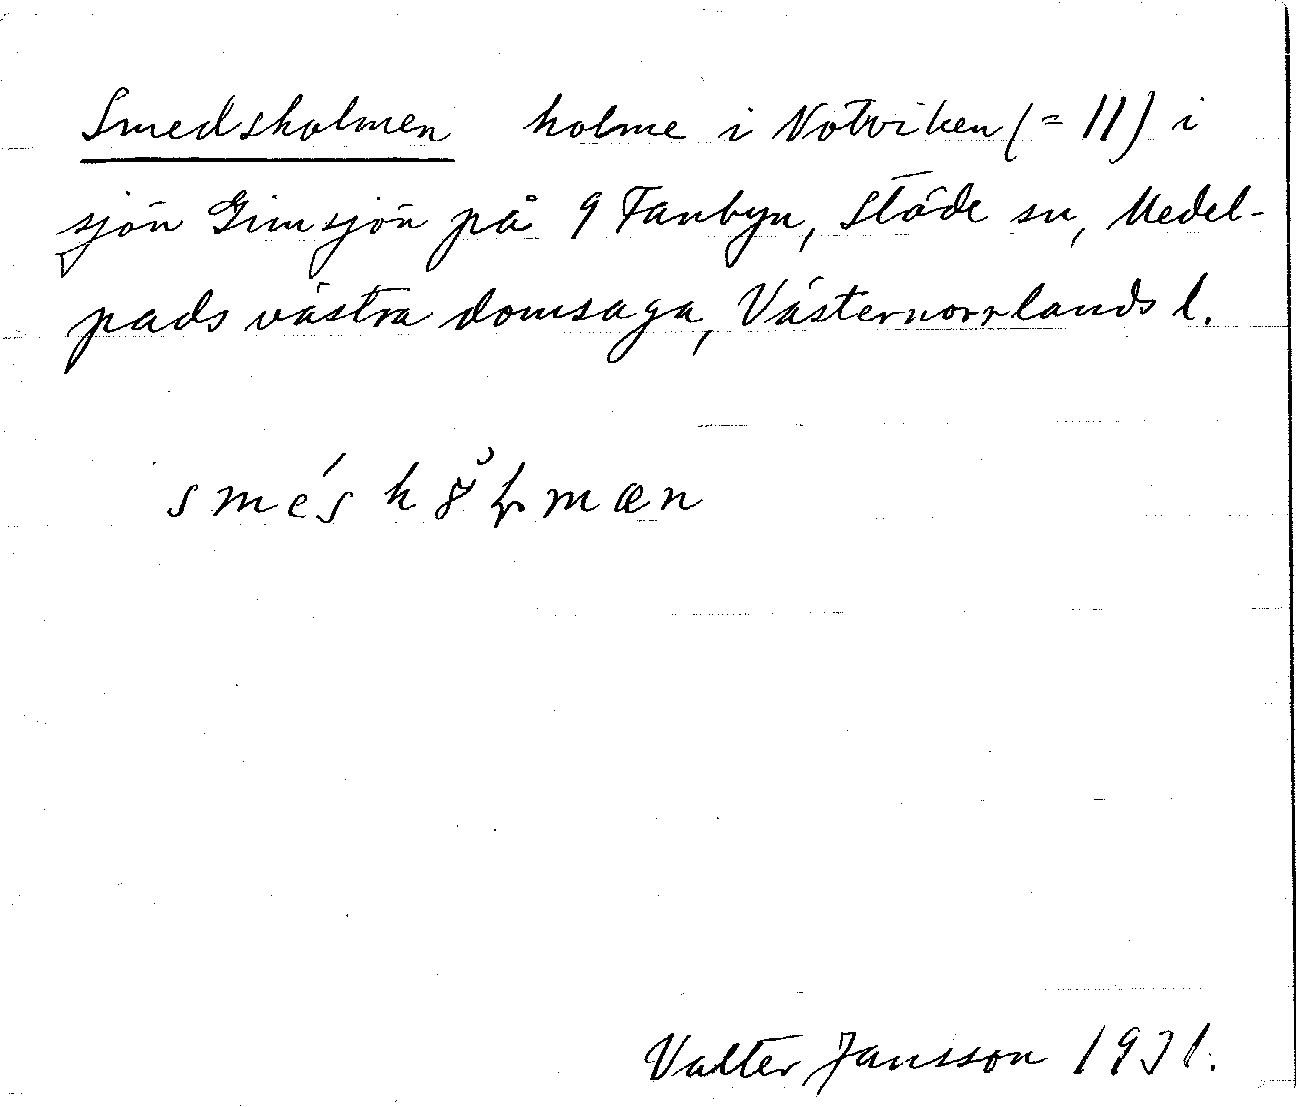 Smedsholmen holme i Notviken (= 11) i
sjön Gimsjön på 9 Fanbyn, Stöde sn, Medel-
pads västra domsaga, Västernorrlands l.
Valter Jansson 1931.